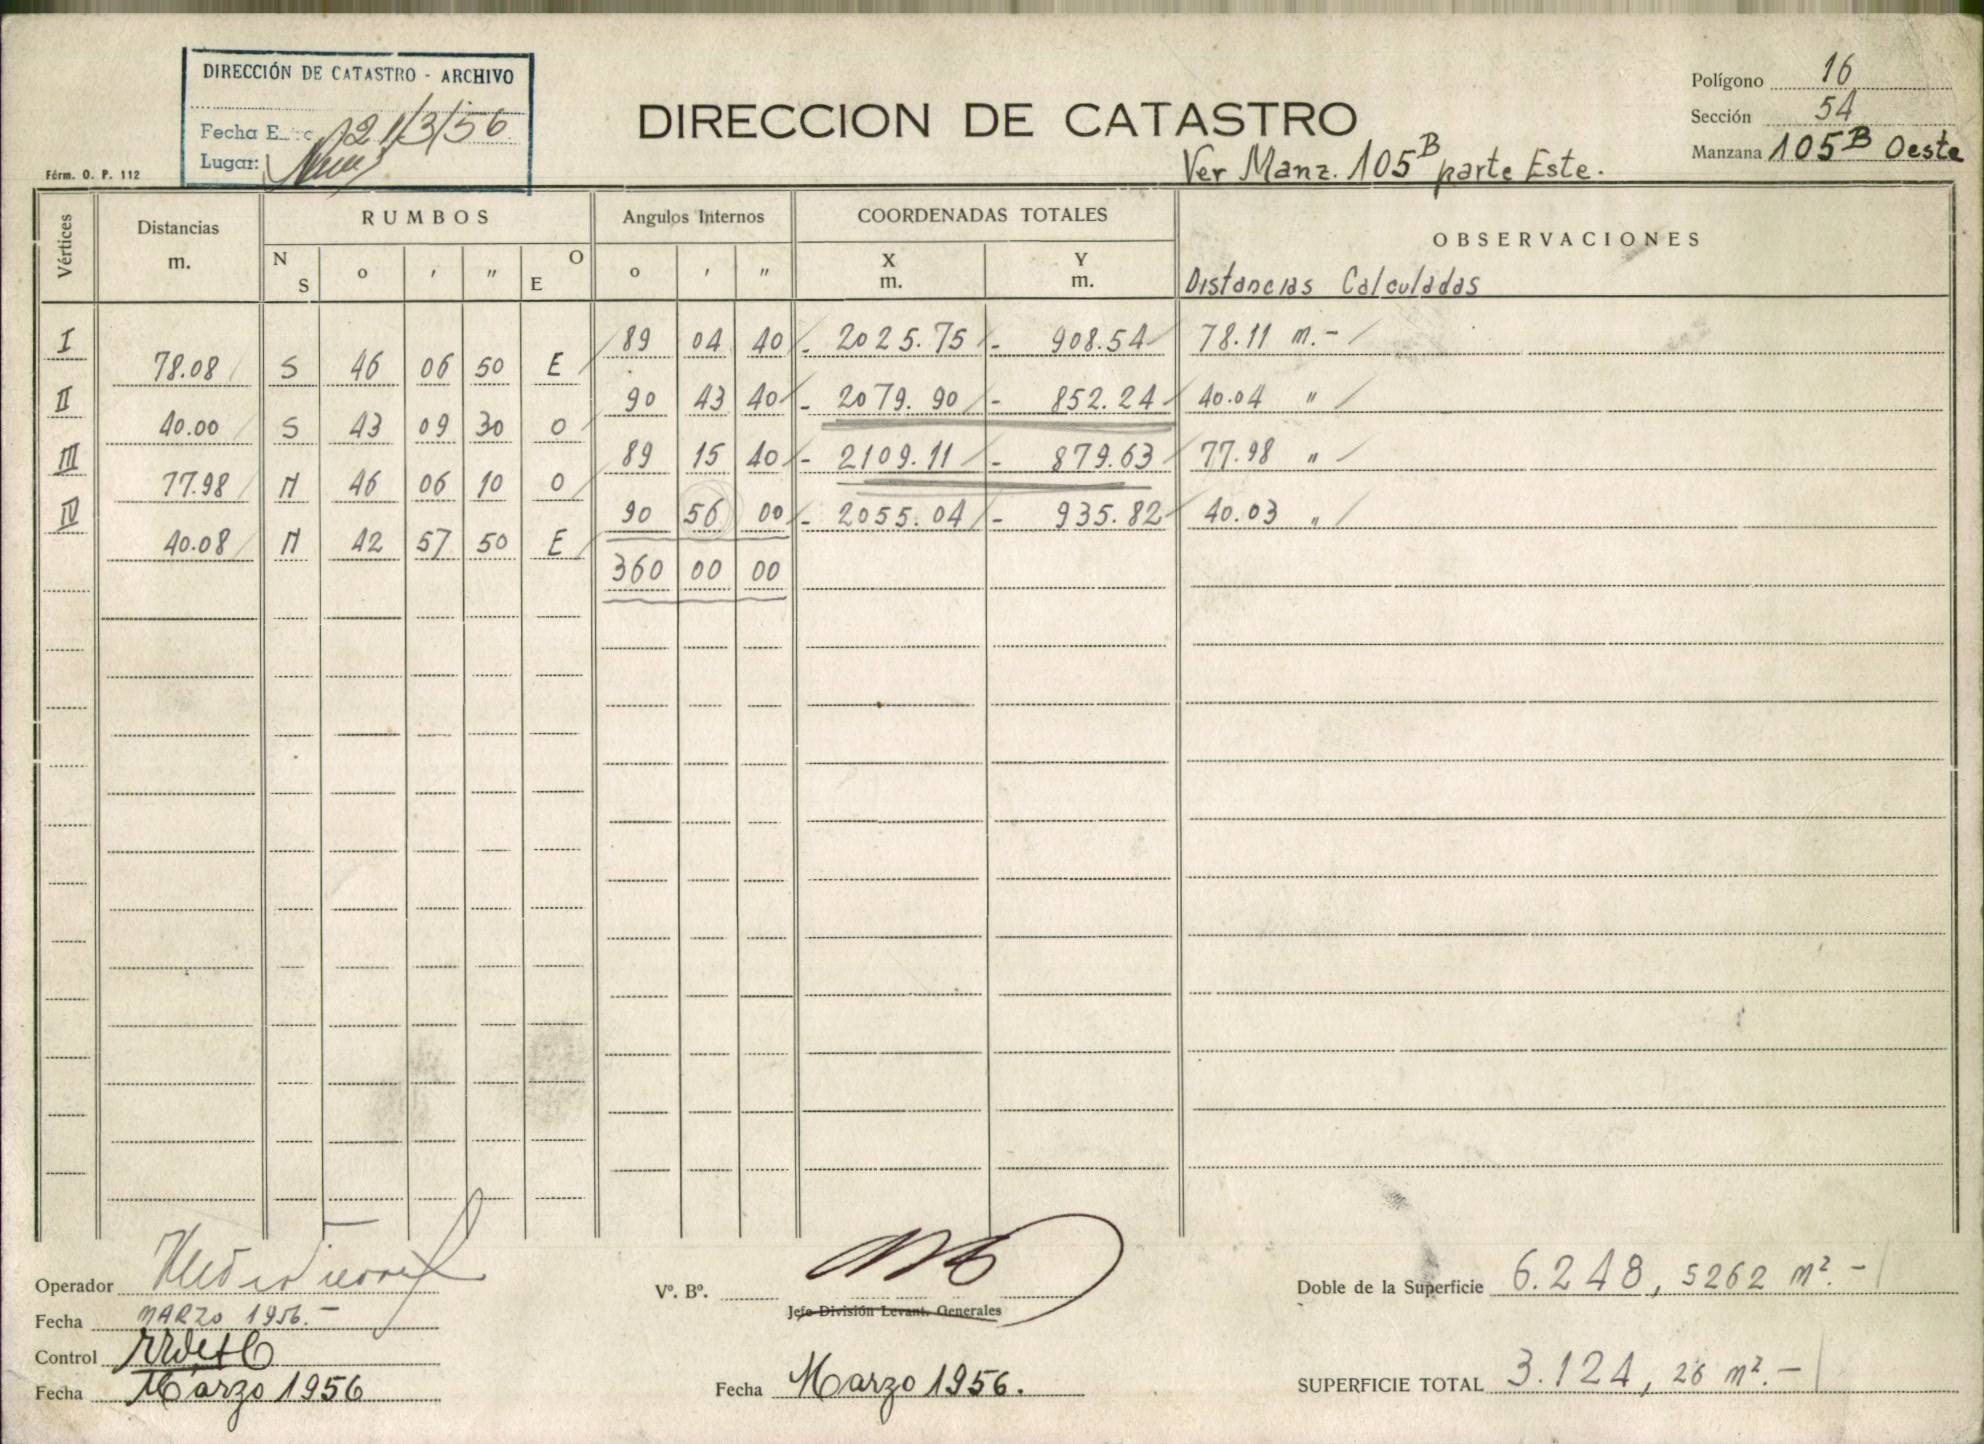 DIRECCIÓN DE CATASTRO - ARCHIVO
Fecha E 21/3/56
Lugar:
Férm. O. P. 112
DIRECCION DE CATASTRO
Ver Manz. 105B parte Este.
Polígono 16
Sección 54
Manzana 105B Oeste
Vértices Distancias m. RUMBOS Angulos Internos COORDENADAS TOTALES OBSERVACIONES
N S o ' " O E o ' " X m. Y m. Distancias Calculadas
I 89 04 40 - 2025.75 - 908.54 78.11 m.-
78.08 S 46 06 50 E
II 90 43 40 - 2079.90 - 852.24 40.04 "
40.00 S 43 09 30 O
III 89 15 40 - 2109.11 - 879.63 77.98 "
77.98 N 46 06 10 O
IV 90 56 00 - 2055.04 - 935.82 40.03 "
40.08 N 42 57 50 E
360 00 00
Operador
Fecha MARZO 1956.-
Control
Fecha Marzo 1956
Vº. Bº.
Jefe División Levant. Generales
Fecha Marzo 1956.
Doble de la Superficie 6.248,5262 m².-
SUPERFICIE TOTAL 3.124,26 m².-